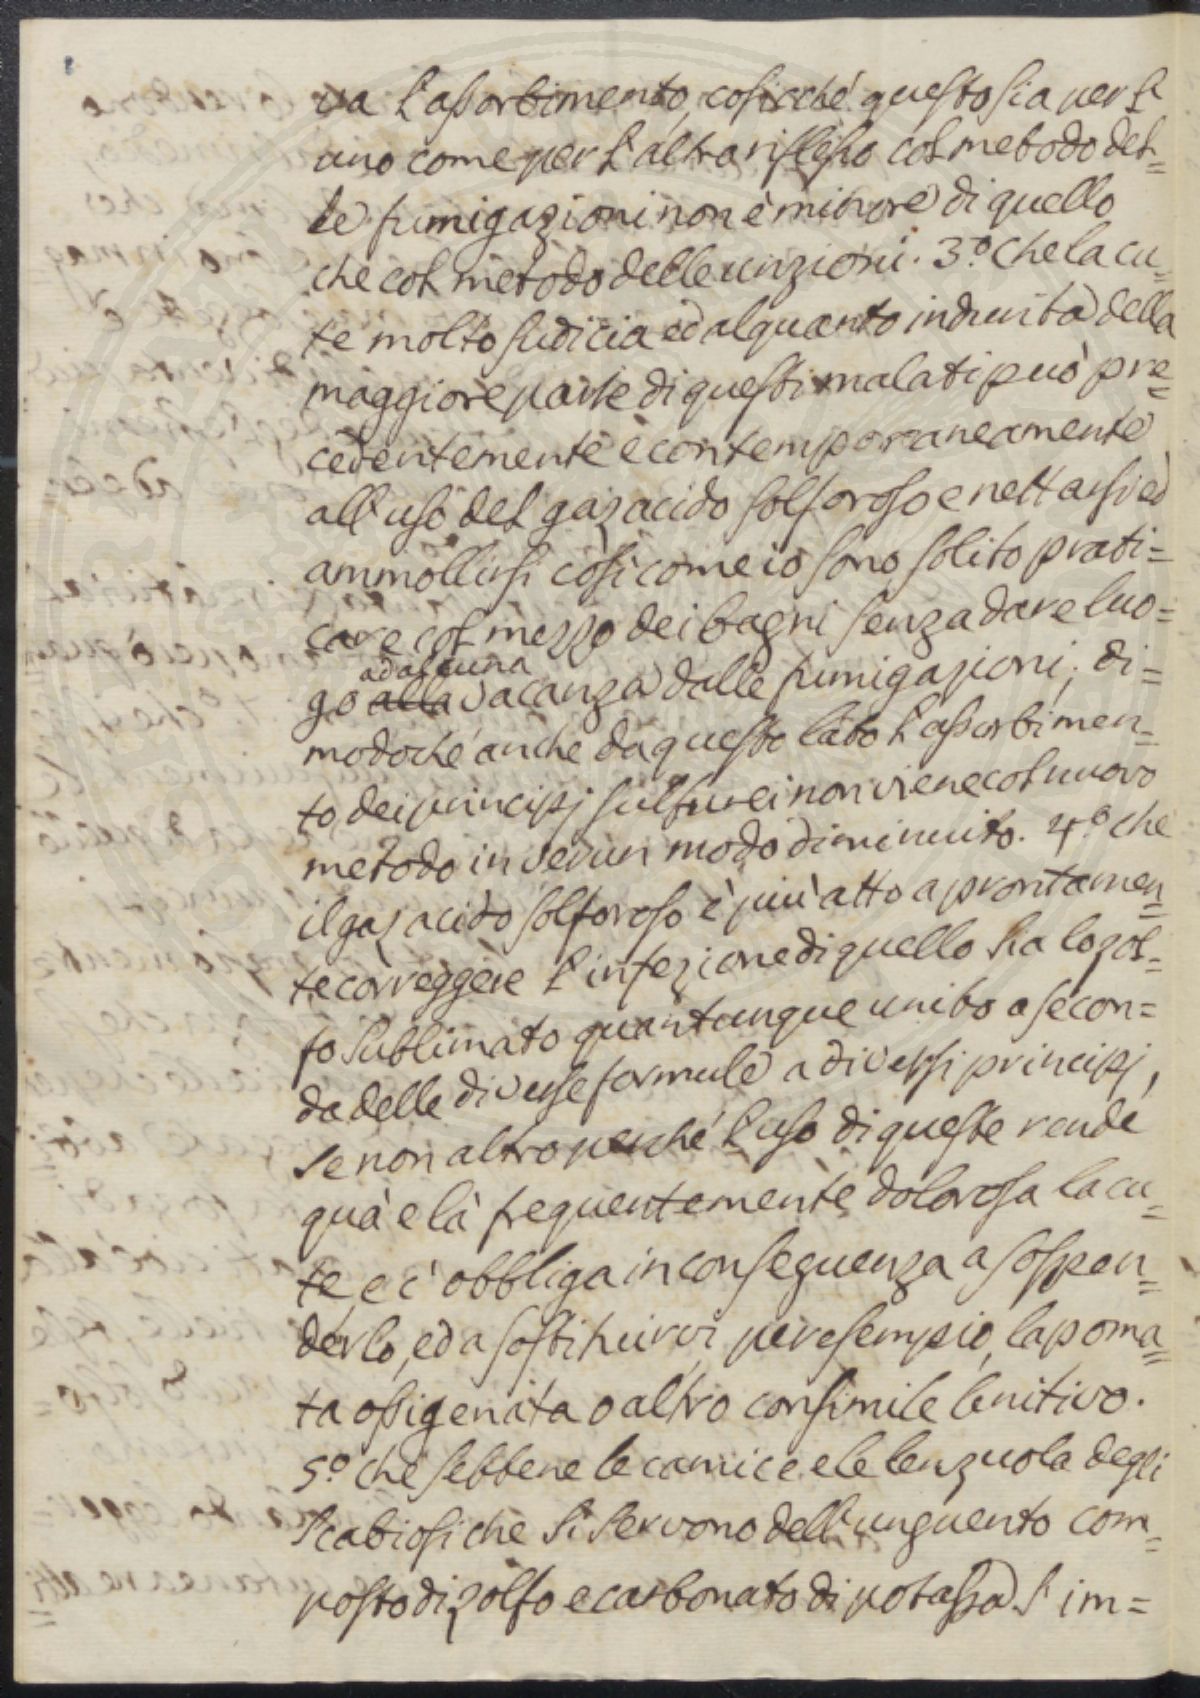 va l'assorbimento, cosicché questo sia per l'
uno come per l'altro riflesso col metodo del=
le fumigazioni non è minore di quello
che col metodo delle unzioni. 3.º che la cu=
te molto sudicia ed alquanto indurita della
maggiore parte di questi malati può pre=
cedentemente e contemporaneamente
all'uso del gaz acido solforoso e nettarsi ed
ammollirsi così come io sono solito prati=
care col mezzo dei bagni senza dare luo=
ad alcuna
go alla vacanza dalle fumigazioni; di=
modoché anche da questo lato l'assorbimen=
to dei principj sulfurei non viene col nuovo
metodo in verun modo diminuito. 4.º che
il gaz acido solforoso è più atto a prontamen=
te correggere l'infezione di quello sia lo zol=
fo sublimato quantunque unito a secon=
da delle diverse formule a diversi principj,
se non altro perché l'uso di queste rende
quà e là frequentemente dolorosa la cu=
te, e c'obbliga in conseguenza a sospen=
derlo, ed a sostituirvi per esempio, la poma=
ta ossigenata o altro consimile lenitivo.
5.º che sebbene le camice e le lenzuola degli
scabiosi che si servono dell'unguento com=
posto di zolfo e carbonato di potassa s'im=